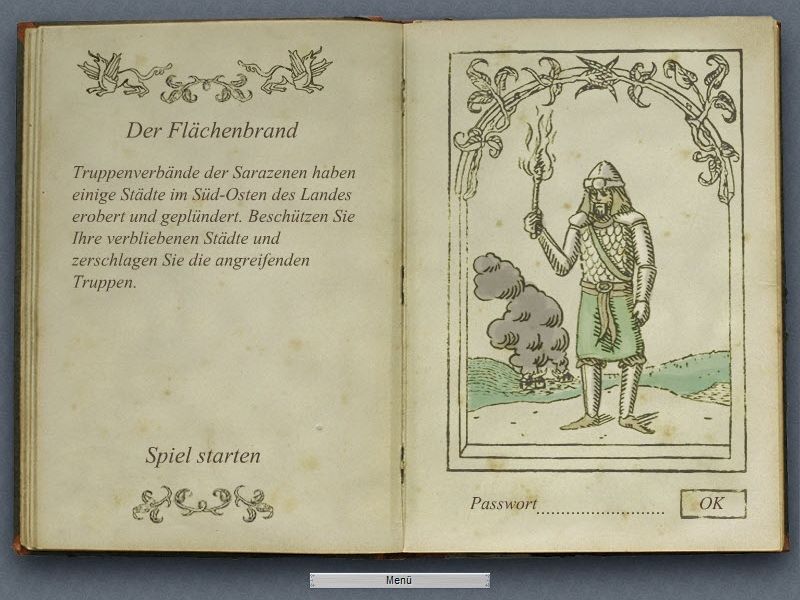 Der Flächenbrand
Truppenverbände der Sarazenen haben
einige Städte im Süd-Osten des Landes
erobert und geplündert. Beschützen Sie
Ihre verbliebenen Städte und
zerschlagen Sie die angreifenden
Truppen.
Spiel starten
Passwort
OK
Menü